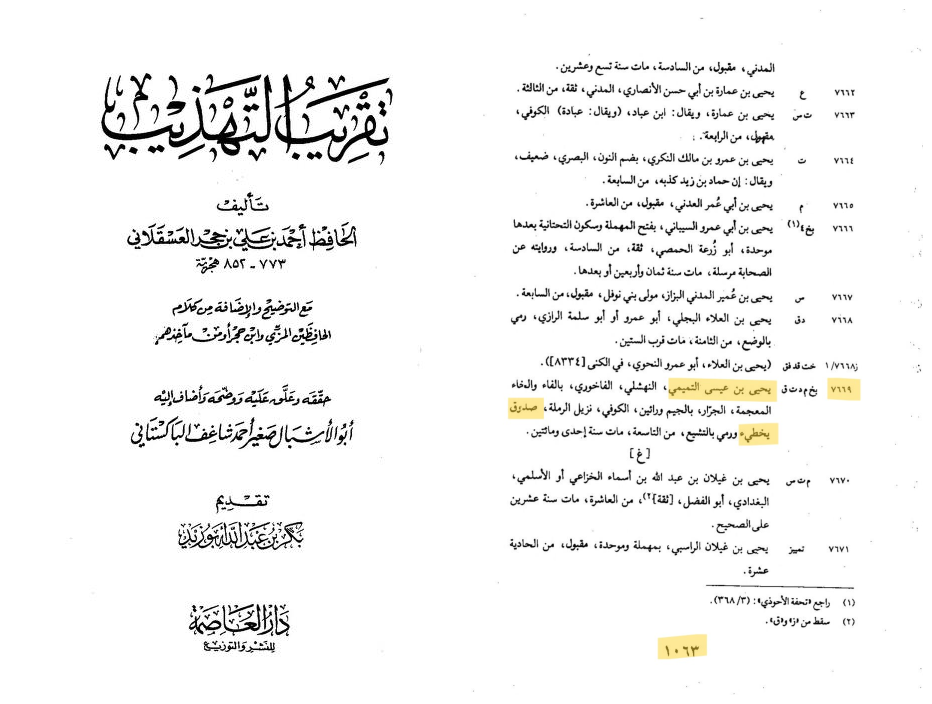 تقريب التهذيب
تأليف
الحافظ أحمد بن علي بن حجر العسقلاني
٧٧٣ - ٨٥٢ هجرية
مع التوضيح والإضافة من كلام
الحافظين المزي وابن حجر أو من مآخذهم
حققه وعلق عليه ووضحه وأضاف إليه
أبو الأشبال صغير أحمد شاغف الباكستاني
تقديم
بكر بن عبد الله أبو زيد
دار العاصمة
للنشر والتوزيع
المدني، مقبول، من السادسة، مات سنة تسع وعشرين.
٧٦٦٢ ع يحيى بن عمارة بن أبي حسن الأنصاري، المدني، ثقة، من الثالثة.
٧٦٦٣ ت س يحيى بن عمارة، ويقال: ابن عباد، (ويقال: عبادة) الكوفي،
مقبول، من الرابعة.
٧٦٦٤ ت يحيى بن عمرو بن مالك النكري، بضم النون، البصري، ضعيف،
ويقال: إن حماد بن زيد كذبه، من السابعة.
٧٦٦٥ م يحيى بن أبي عُمر العدني، مقبول، من العاشرة.
٧٦٦٦ بخ ٤(١) يحيى بن أبي عمرو السيباني، بفتح المهملة وسكون التحتانية بعدها
موحدة، أبو زُرعة الحمصي، ثقة، من السادسة، وروايته عن
الصحابة مرسلة، مات سنة ثمان وأربعين أو بعدها.
٧٦٦٧ س يحيى بن عُمير المدني البزاز، مولى بني نوفل، مقبول، من السابعة.
٧٦٦٨ د ق يحيى بن العلاء البجلي، أبو عمرو أو أبو سلمة الرازي، رمي
بالوضع، من الثامنة، مات قرب الستين.
ز٧٦٦٨/١ خت قد فق (يحيى بن العلاء، أبو عمرو النحوي، في الكنى [٨٣٣٤]).
٧٦٦٩ بخ م د ت ق يحيى بن عيسى التميمي، النهشلي، الفاخوري، بالفاء والخاء
المعجمة، الجرّار، بالجيم ورائين، الكوفي، نزيل الرملة، صدوق
يخطىء ورمي بالتشيع، من التاسعة، مات سنة إحدى ومائتين.
[غ]
٧٦٧٠ م ت س يحيى بن غيلان بن عبد الله بن أسماء الخزاعي أو الأسلمي،
البغدادي، أبو الفضل، [ثقة](٢)، من العاشرة، مات سنة عشرين
على الصحيح.
٧٦٧١ تمييز يحيى بن غيلان الراسبي، بمهملة وموحدة، مقبول، من الحادية
عشرة.
(١) راجع «تحفة الأحوذي»: (٣/٣٦٨).
(٢) سقط من «ز» و«ق».
١٠٦٣